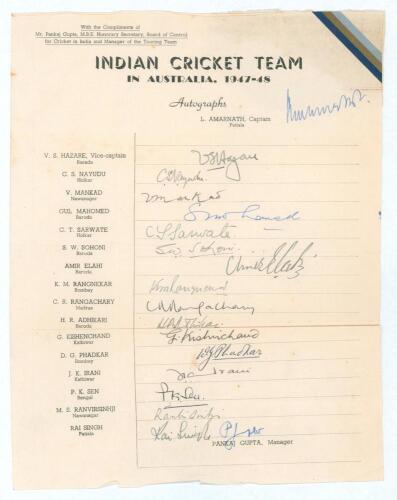 With the Compliments of
Mr. Pankaj Gupta, M.B.E. Honorary Secretary, Board of Control
for Cricket in India and Manager of the Touring Team
INDIAN CRICKET TEAM
IN AUSTRALIA, 1947-48
Autographs
L. AMARNATH, Captain
Patiala
V. S. HAZARE, Vice-captain
Baroda
VS Hazare
C. S. NAYUDU
Holkar
C S Nayudu.
V. MANKAD
Nawanagar
V mankad
GUL MAHOMED
Baroda
C. T. SARWATE
Holkar
C T Sarwate
S. W. SOHONI
Baroda
S. W. Sohoni.
AMIR ELAHI
Baroda
Amir Elahi
K. M. RANGNEKAR
Bombay
C. R. RANGACHARY
Madras
C R Rangachary
H. R. ADHIKARI
Baroda
H R Adhikari
G. KISHENCHAND
Kathiawar
G. Kishinchand
D. G. PHADKAR
Bombay
D G Phadkar
J. K. IRANI
Kathiawar
Irani
P. K. SEN
Bengal
P K Sen
M. S. RANVIRSINHJI
Nawanagar
Ranvirsinhji
RAI SINGH
Patiala
Rai Singh
PANKAJ GUPTA, Manager